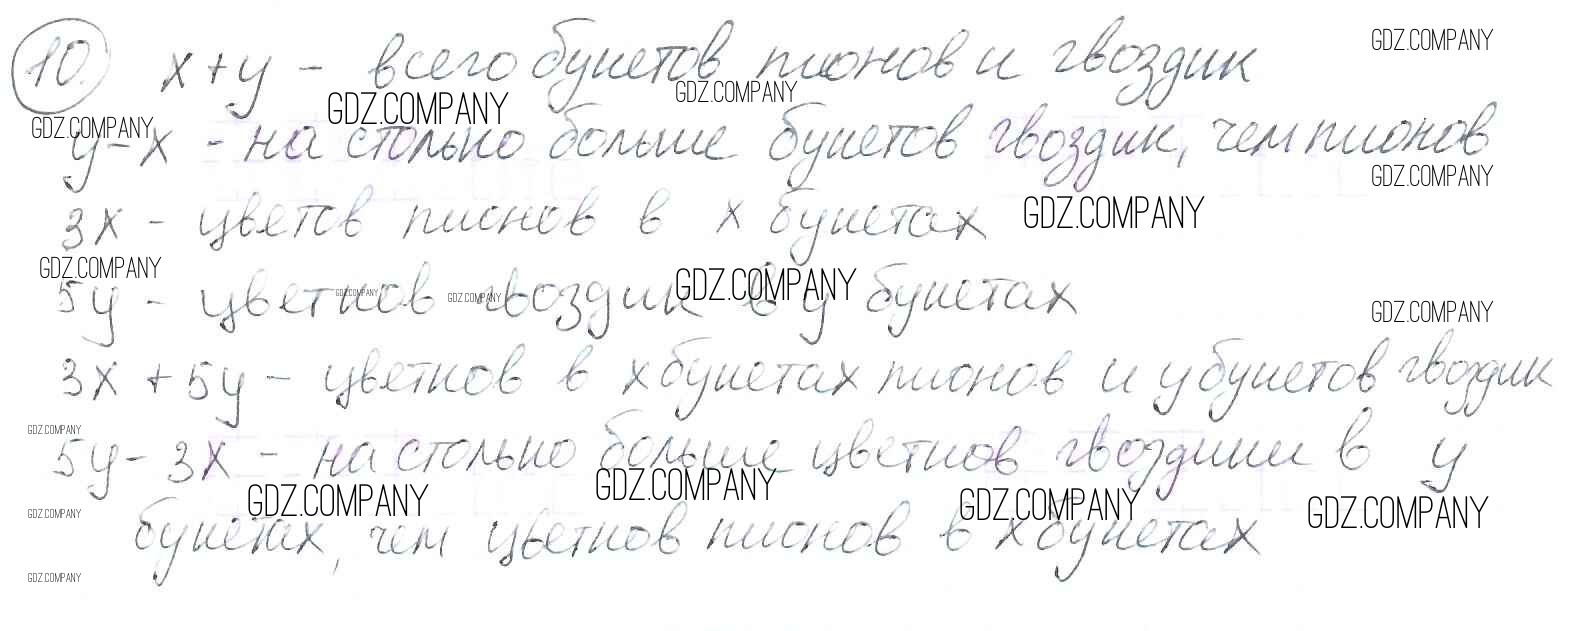 10. x + y - всего букетов пионов и гвоздик
GDZ.COMPANY
GDZ.COMPANY
GDZ.COMPANY
GDZ.COMPANY
y - x - на столько больше букетов гвоздик, чем пионов
GDZ.COMPANY
3x - цветов пионов в x букетах
GDZ.COMPANY
GDZ.COMPANY
5y - цветков гвоздик в y букетах
GDZ.COMPANY
GDZ.COMPANY
GDZ.COMPANY
GDZ.COMPANY
3x + 5y - цветков в x букетах пионов и y букетов гвоздик
GDZ.COMPANY
5y - 3x - на столько больше цветков гвоздики в y
GDZ.COMPANY
GDZ.COMPANY
GDZ.COMPANY
GDZ.COMPANY
GDZ.COMPANY
букетах, чем цветков пионов в x букетах
GDZ.COMPANY